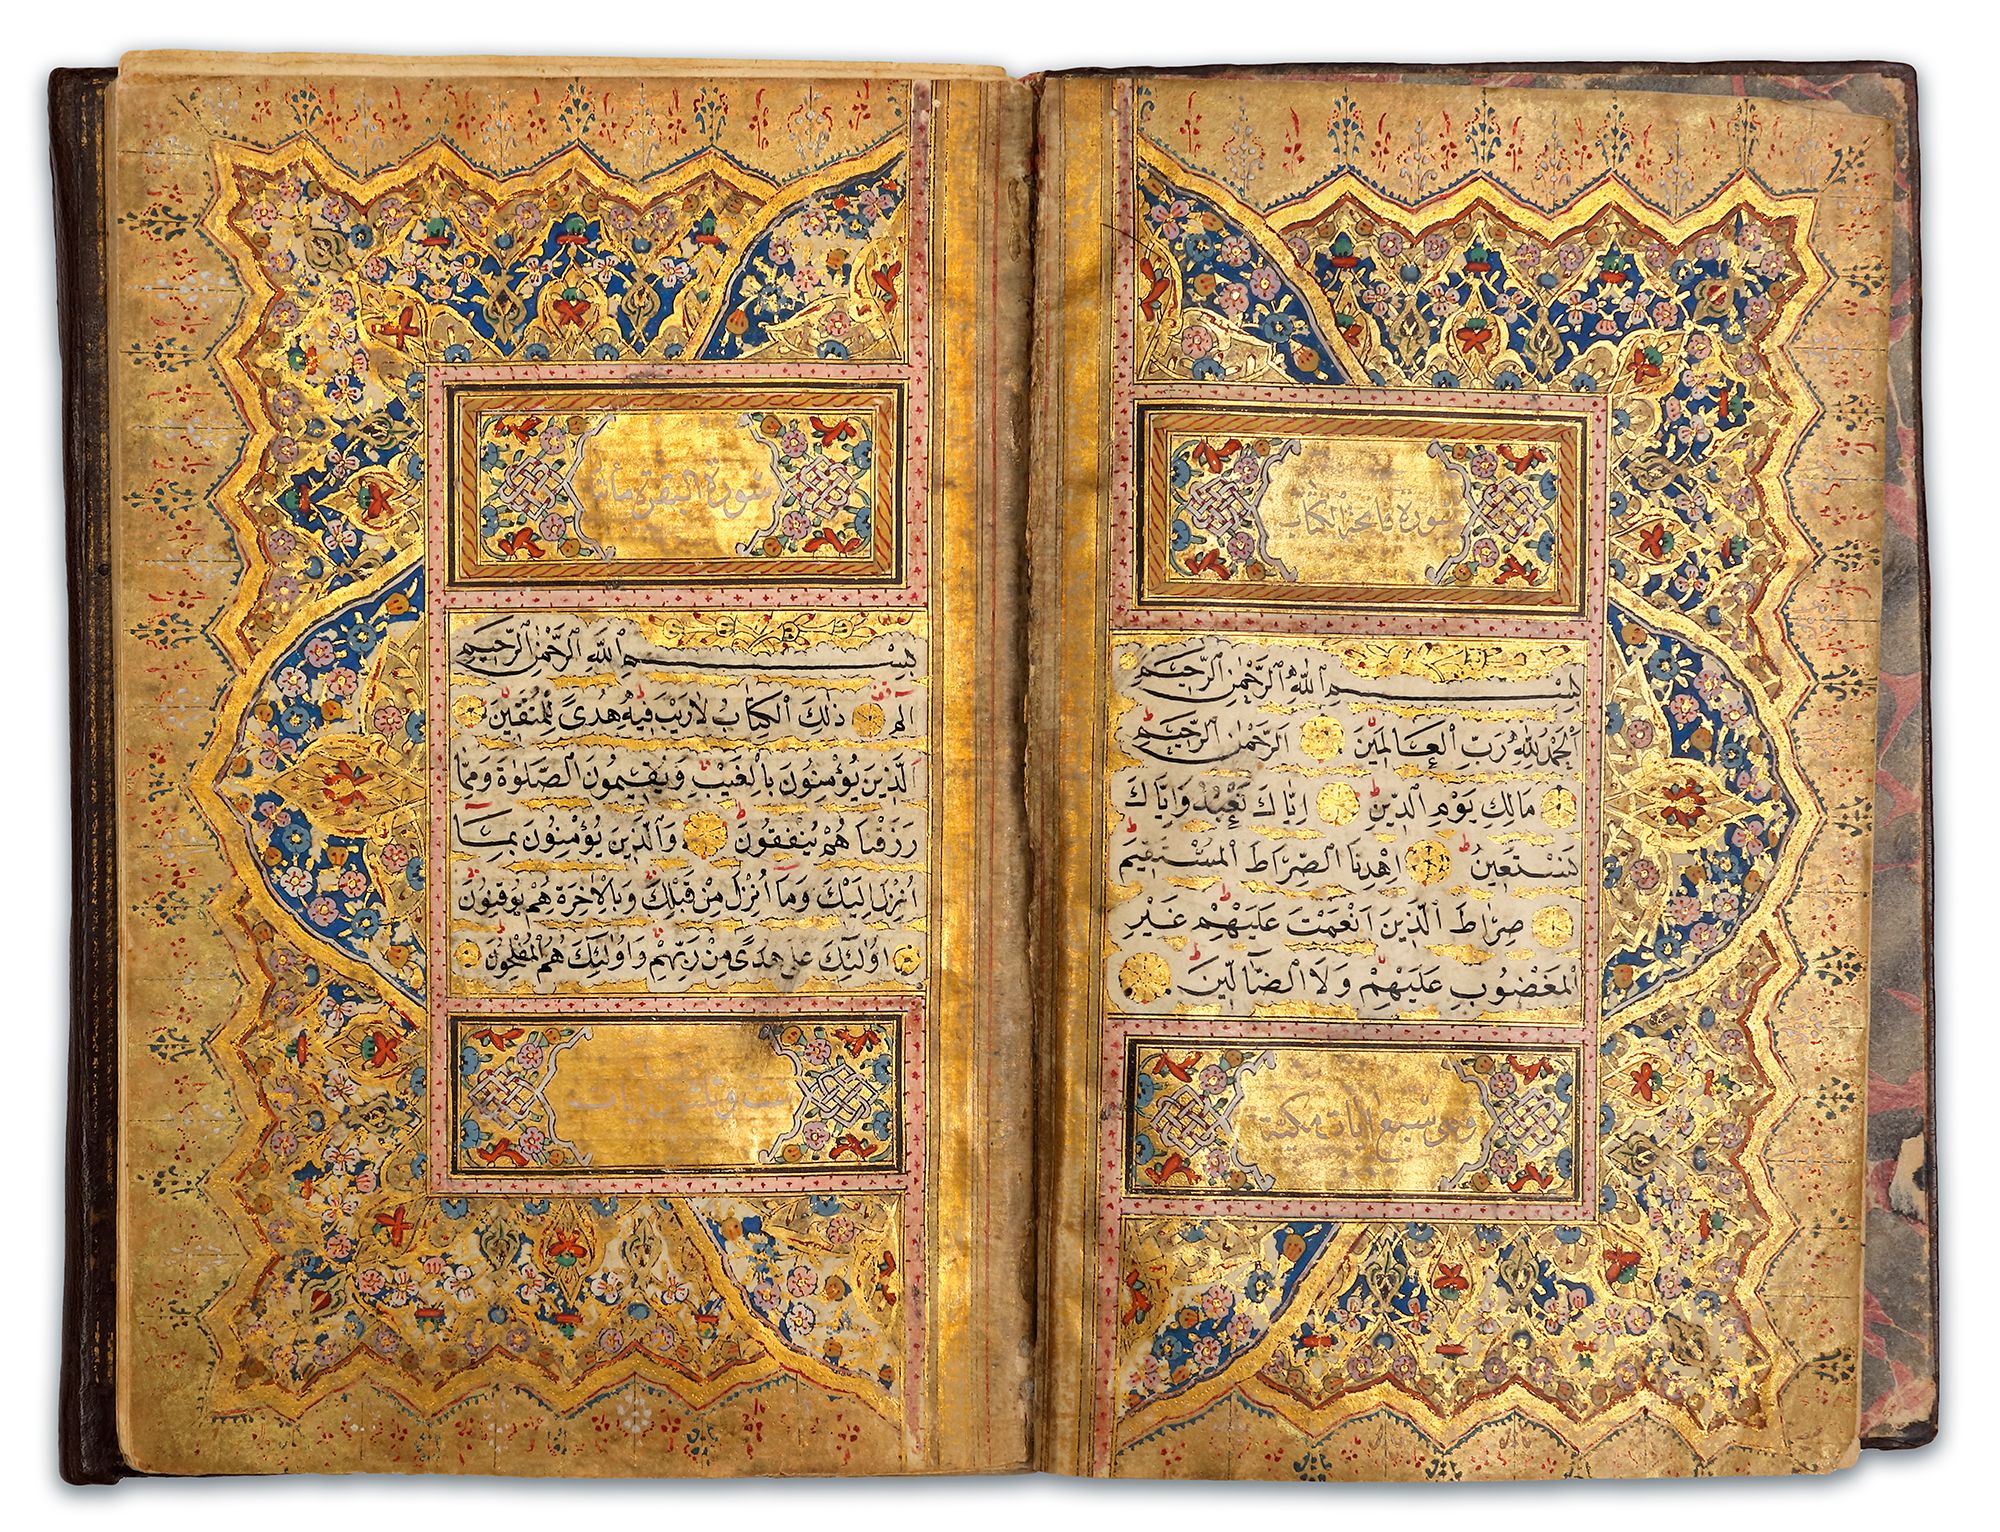 سورة فاتحة الكتاب
بِسْمِ اللّٰهِ الرَّحْمٰنِ الرَّحِيمِ
اَلْحَمْدُ لِلّٰهِ رَبِّ الْعَالَمِينَ الرَّحْمٰنِ الرَّحِيمِ
مَالِكِ يَوْمِ الدِّينِ اِيَّاكَ نَعْبُدُ وَاِيَّاكَ
نَسْتَعِينُ اِهْدِنَا الصِّرَاطَ الْمُسْتَقِيمَ
صِرَاطَ الَّذِينَ اَنْعَمْتَ عَلَيْهِمْ غَيْرِ
الْمَغْضُوبِ عَلَيْهِمْ وَلَا الضَّالِّينَ
وهى سبع ايات مكية
سورة البقرة مائتا
بِسْمِ اللّٰهِ الرَّحْمٰنِ الرَّحِيمِ
الم ذٰلِكَ الْكِتَابُ لَا رَيْبَ فِيهِ هُدًى لِلْمُتَّقِينَ
اَلَّذِينَ يُؤْمِنُونَ بِالْغَيْبِ وَيُقِيمُونَ الصَّلٰوةَ وَمِمَّا
رَزَقْنَاهُمْ يُنْفِقُونَ وَالَّذِينَ يُؤْمِنُونَ بِمَا
اُنْزِلَ اِلَيْكَ وَمَا اُنْزِلَ مِنْ قَبْلِكَ وَبِالْاٰخِرَةِ هُمْ يُوقِنُونَ
اُولٰئِكَ عَلٰى هُدًى مِنْ رَبِّهِمْ وَاُولٰئِكَ هُمُ الْمُفْلِحُونَ
ست و ايات